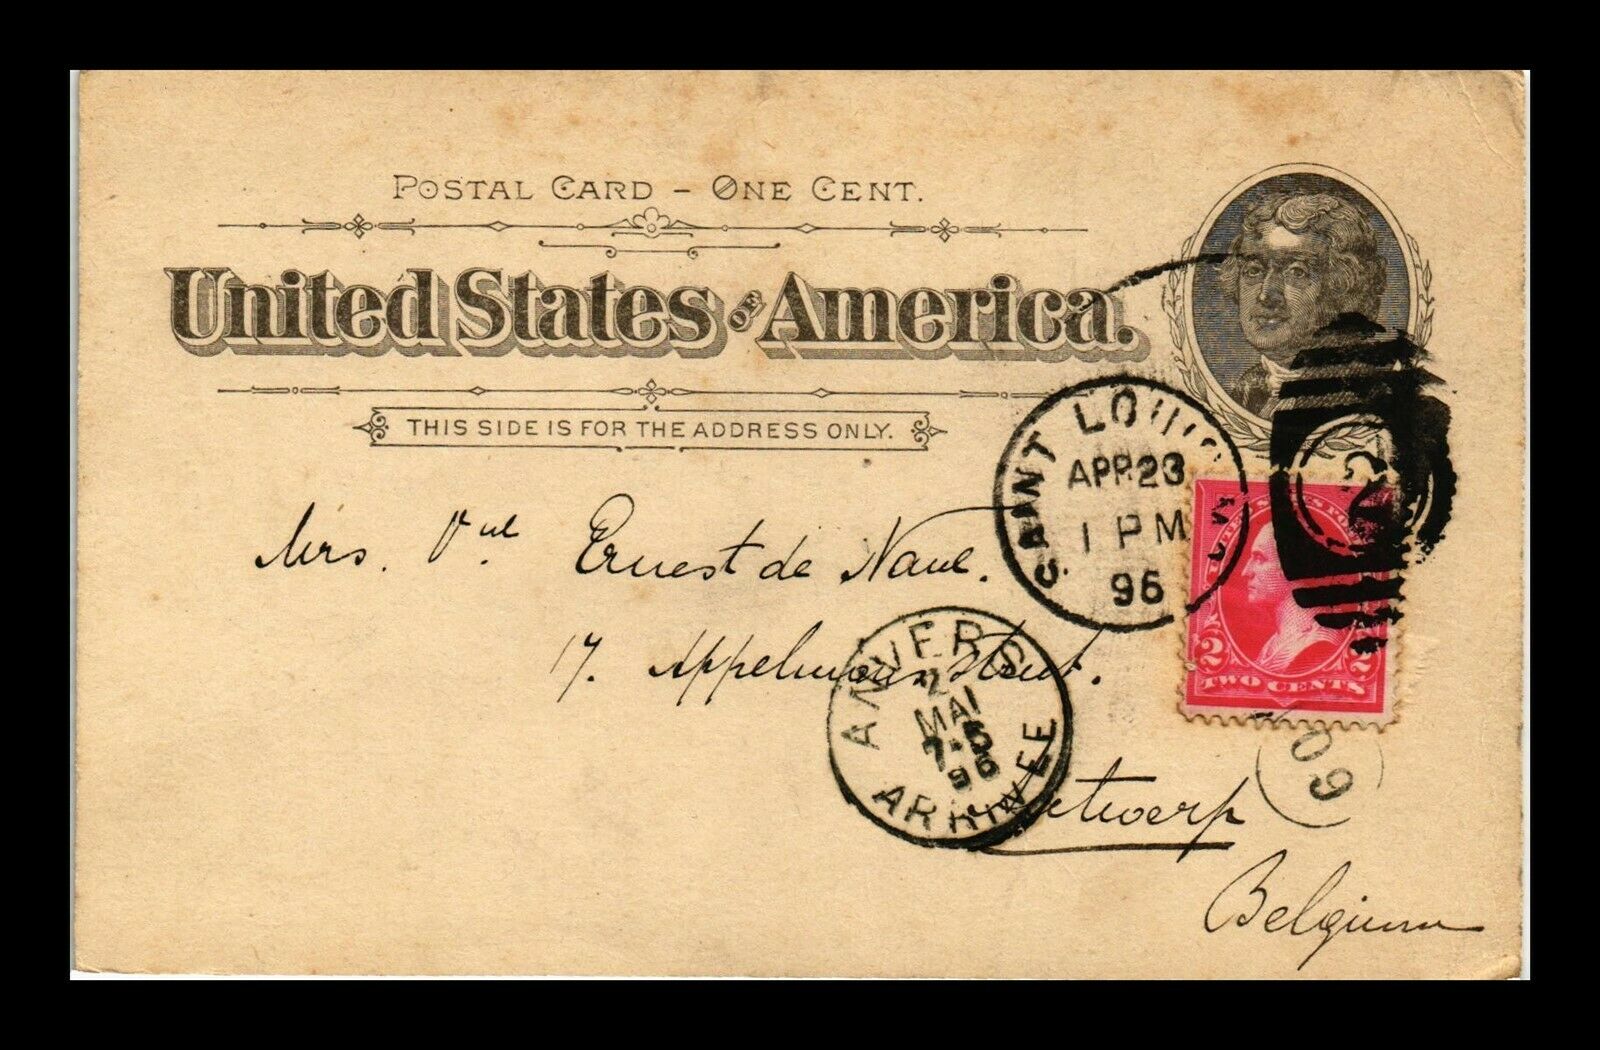 POSTAL CARD – ONE CENT.
United States OF America.
THIS SIDE IS FOR THE ADDRESS ONLY.
SAINT LOUIS
APR 23
1 PM
96
2 TWO CENTS 2
Mrs. Ernest de
17. Appelmans Street.
ANVERS
2
MAI
96
ARRIVEE
Antwerp
Belgium
60